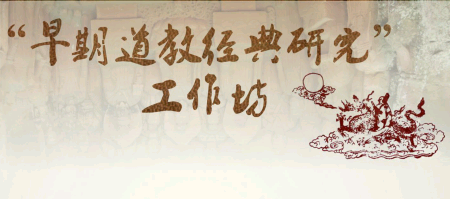 “早期道教经典研究”
工作坊